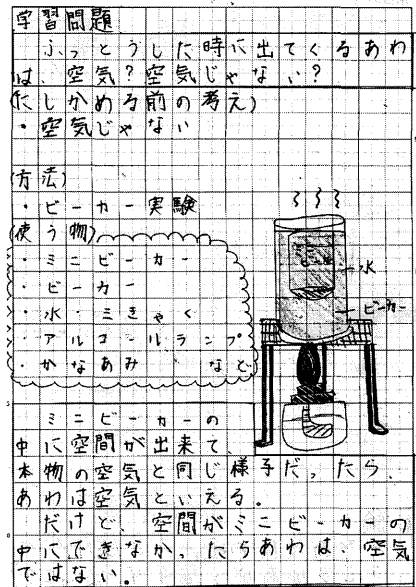 学習問題
ふっとうした時に出てくるあわ
は、空気？空気じゃない？
(たしかめる前の考え)
・空気じゃない
(方法)
・ビーカー実験
(使う物)
・ミニビーカー
・ビーカー
・水・三きゃく
・アルコールランプ
・かなあみ など
水
ビーカー
ミニビーカーの
中に空間が出来て、
本物の空気と同じ様子だったら、
あわは空気といえる。
だけど、空間がミニビーカーの
中にできなかったらあわは、空気
ではない。